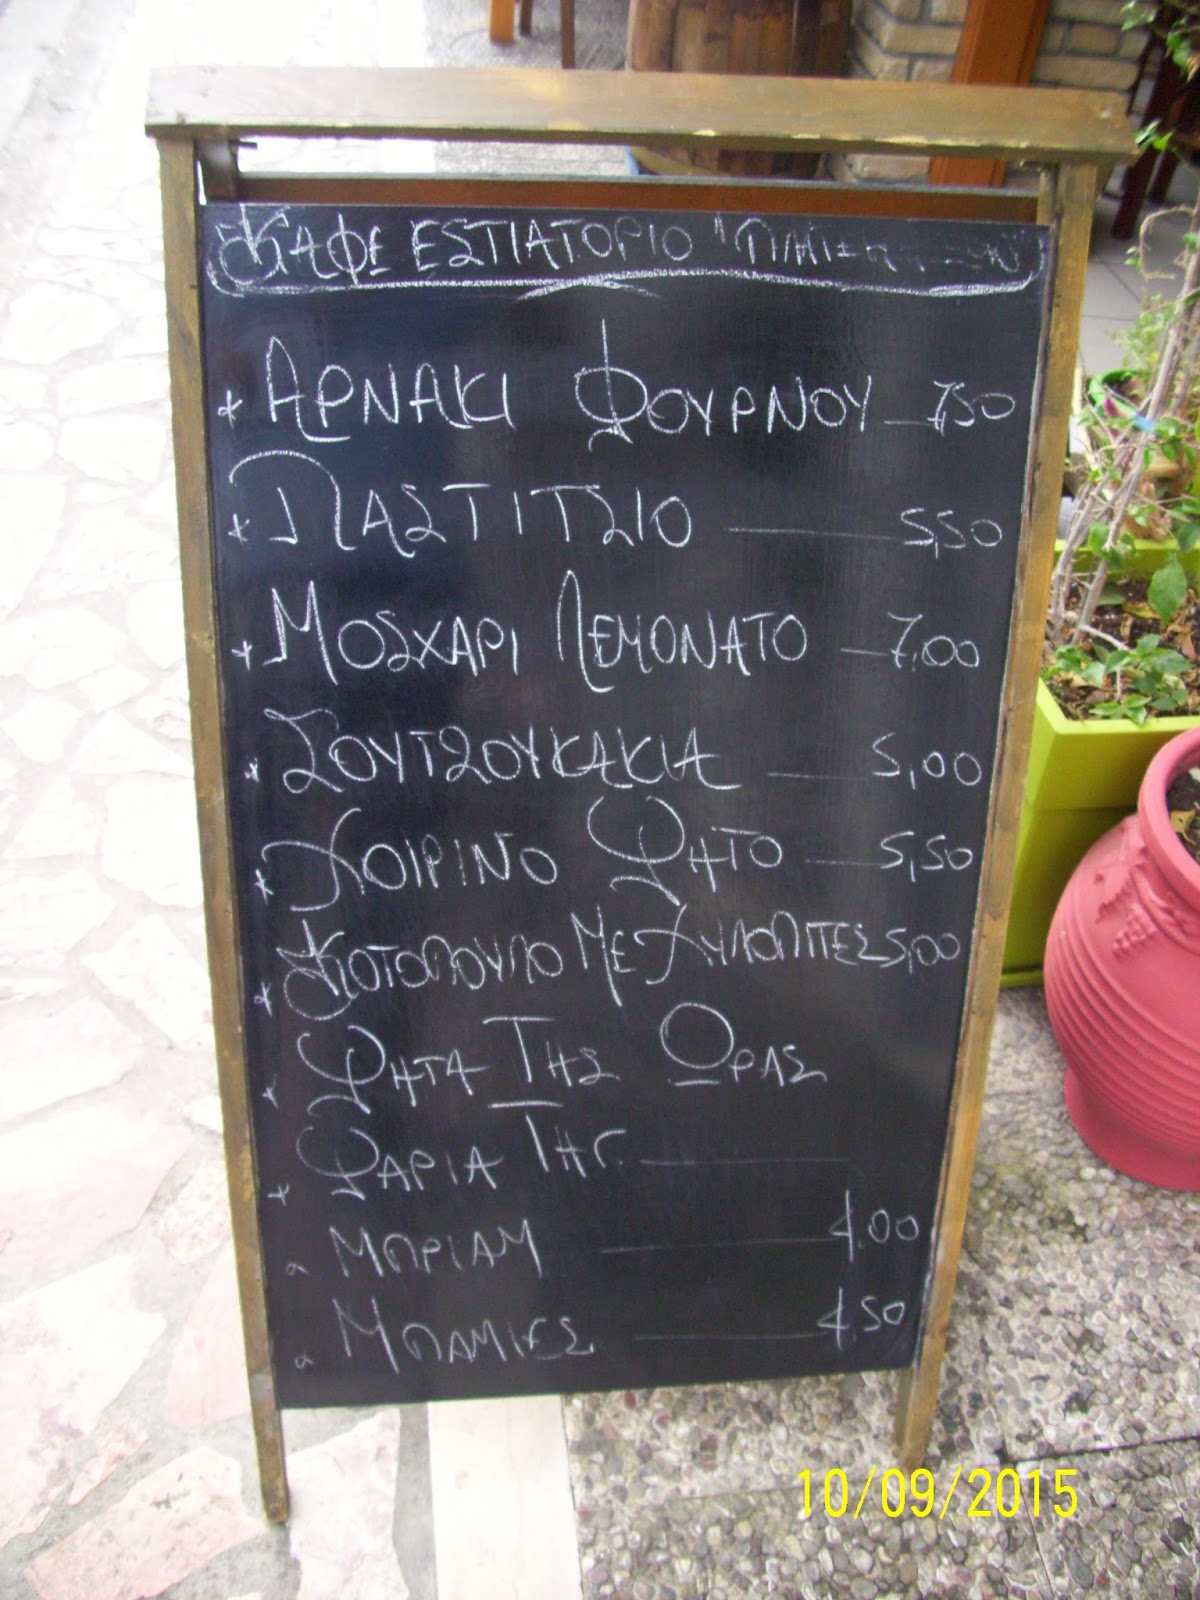 ΚΑΦΕ ΕΣΤΙΑΤΟΡΙΟ
* ΑΡΝΑΚΙ ΦΟΥΡΝΟΥ 7,50
* ΠΑΣΤΙΤΣΙΟ 5,50
* ΜΟΣΧΑΡΙ ΛΕΜΟΝΑΤΟ 7,00
* ΣΟΥΤΣΟΥΚΑΚΙΑ 5,00
* ΧΟΙΡΙΝΟ ΨΗΤΟ 5,50
* ΚΟΤΟΠΟΥΛΟ ΜΕ ΧΥΛΟΠΙΤΕΣ 5,00
* ΨΗΤΑ ΤΗΣ ΩΡΑΣ
* ΨΑΡΙΑ ΤΗΓ.
ΜΠΡΙΑΜ 4.00
ΜΠΑΜΙΕΣ 4,50
10/09/2015